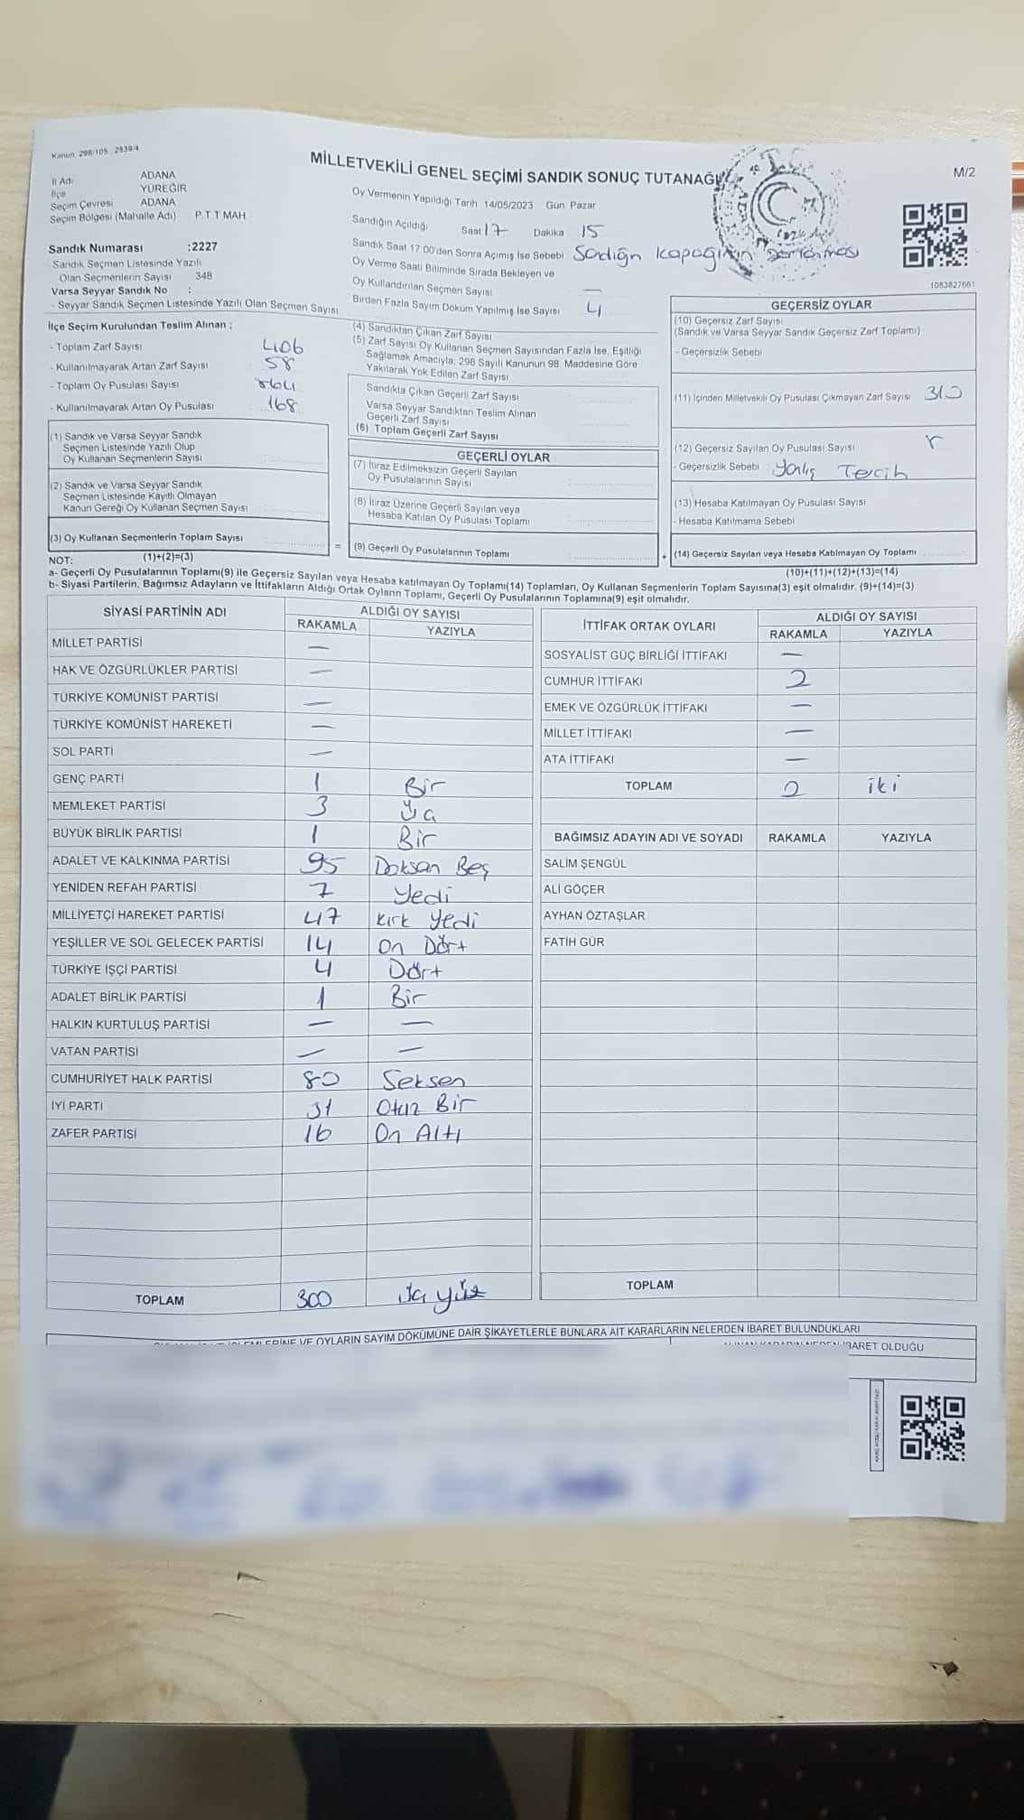 Kanun: 298/105, 2839/4
MİLLETVEKİLİ GENEL SEÇİMİ SANDIK SONUÇ TUTANAĞI
M/2
İl Adı ADANA
İlçe YÜREĞİR
Seçim Çevresi ADANA
Seçim Bölgesi (Mahalle Adı) P.T.T MAH
Oy Vermenin Yapıldığı Tarih 14/05/2023 Gün Pazar
Sandığın Açıldığı Saat 17 Dakika 15
Sandık Saat 17.00'den Sonra Açılmış İse Sebebi Sandığın kapağının
Oy Verme Saati Bitiminde Sırada Bekleyen ve
Oy Kullandırılan Seçmen Sayısı —
Birden Fazla Sayım Döküm Yapılmış İse Sayısı 4
1083827661
Sandık Numarası :2227
Sandık Seçmen Listesinde Yazılı
Olan Seçmenlerin Sayısı 348
Varsa Seyyar Sandık No :
- Seyyar Sandık Seçmen Listesinde Yazılı Olan Seçmen Sayısı
İlçe Seçim Kurulundan Teslim Alınan :
- Toplam Zarf Sayısı 406
- Kullanılmayarak Artan Zarf Sayısı 58
- Toplam Oy Pusulası Sayısı
- Kullanılmayarak Artan Oy Pusulası 168
(1) Sandık ve Varsa Seyyar Sandık
Seçmen Listesinde Yazılı Olup
Oy Kullanan Seçmenlerin Sayısı
(2) Sandık ve Varsa Seyyar Sandık
Seçmen Listesinde Kayıtlı Olmayan
Kanun Gereği Oy Kullanan Seçmen Sayısı
(3) Oy Kullanan Seçmenlerin Toplam Sayısı
(1)+(2)=(3)
(4) Sandıktan Çıkan Zarf Sayısı
(5) Zarf Sayısı Oy Kullanan Seçmen Sayısından Fazla İse, Eşitliği
Sağlamak Amacıyla, 298 Sayılı Kanunun 98. Maddesine Göre
Yakılarak Yok Edilen Zarf Sayısı
Sandıkta Çıkan Geçerli Zarf Sayısı
Varsa Seyyar Sandıktan Teslim Alınan
Geçerli Zarf Sayısı
(6) Toplam Geçerli Zarf Sayısı
GEÇERLİ OYLAR
(7) İtiraz Edilmeksizin Geçerli Sayılan
Oy Pusulalarının Sayısı
(8) İtiraz Üzerine Geçerli Sayılan veya
Hesaba Katılan Oy Pusulası Toplamı
= (9) Geçerli Oy Pusulalarının Toplamı +
GEÇERSİZ OYLAR
(10) Geçersiz Zarf Sayısı
(Sandık ve Varsa Seyyar Sandık Geçersiz Zarf Toplamı)
- Geçersizlik Sebebi
(11) İçinden Milletvekili Oy Pusulası Çıkmayan Zarf Sayısı
(12) Geçersiz Sayılan Oy Pusulası Sayısı
- Geçersizlik Sebebi Yanlış Tercih
(13) Hesaba Katılmayan Oy Pusulası Sayısı
- Hesaba Katılmama Sebebi
(14) Geçersiz Sayılan veya Hesaba Katılmayan Oy Toplamı
(10)+(11)+(12)+(13)=(14)
NOT:
a- Geçerli Oy Pusulalarının Toplamı(9) ile Geçersiz Sayılan veya Hesaba katılmayan Oy Toplamı(14) Toplamları, Oy Kullanan Seçmenlerin Toplam Sayısına(3) eşit olmalıdır. (9)+(14)=(3)
b- Siyasi Partilerin, Bağımsız Adayların ve İttifakların Aldığı Ortak Oyların Toplamı, Geçerli Oy Pusulalarının Toplamına(9) eşit olmalıdır.
SİYASİ PARTİNİN ADI ALDIĞI OY SAYISI
RAKAMLA YAZIYLA
MİLLET PARTİSİ —
HAK VE ÖZGÜRLÜKLER PARTİSİ —
TÜRKİYE KOMÜNİST PARTİSİ —
TÜRKİYE KOMÜNİST HAREKETİ —
SOL PARTİ —
GENÇ PARTİ 1 Bir
MEMLEKET PARTİSİ 3 Üç
BÜYÜK BİRLİK PARTİSİ 1 Bir
ADALET VE KALKINMA PARTİSİ 95 Doksan Beş
YENİDEN REFAH PARTİSİ 7 Yedi
MİLLİYETÇİ HAREKET PARTİSİ 47 Kırk Yedi
YEŞİLLER VE SOL GELECEK PARTİSİ 14 On Dört
TÜRKİYE İŞÇİ PARTİSİ 4 Dört
ADALET BİRLİK PARTİSİ 1 Bir
HALKIN KURTULUŞ PARTİSİ — —
VATAN PARTİSİ — —
CUMHURİYET HALK PARTİSİ 80 Seksen
İYİ PARTİ 31 Otuz Bir
ZAFER PARTİSİ 16 On Altı
TOPLAM 300 Üç yüz
İTTİFAK ORTAK OYLARI ALDIĞI OY SAYISI
RAKAMLA YAZIYLA
SOSYALİST GÜÇ BİRLİĞİ İTTİFAKI —
CUMHUR İTTİFAKI 2
EMEK VE ÖZGÜRLÜK İTTİFAKI —
MİLLET İTTİFAKI —
ATA İTTİFAKI —
TOPLAM 2 iki
BAĞIMSIZ ADAYIN ADI VE SOYADI RAKAMLA YAZIYLA
SALİM ŞENGÜL
ALİ GÖÇER
AYHAN ÖZTAŞLAR
FATİH GÜR
TOPLAM
VE OYLARIN SAYIM DÖKÜMÜNE DAİR ŞİKAYETLERLE BUNLARA AİT KARARLARIN NELERDEN İBARET BULUNDUKLARI
İBARET OLDUĞU